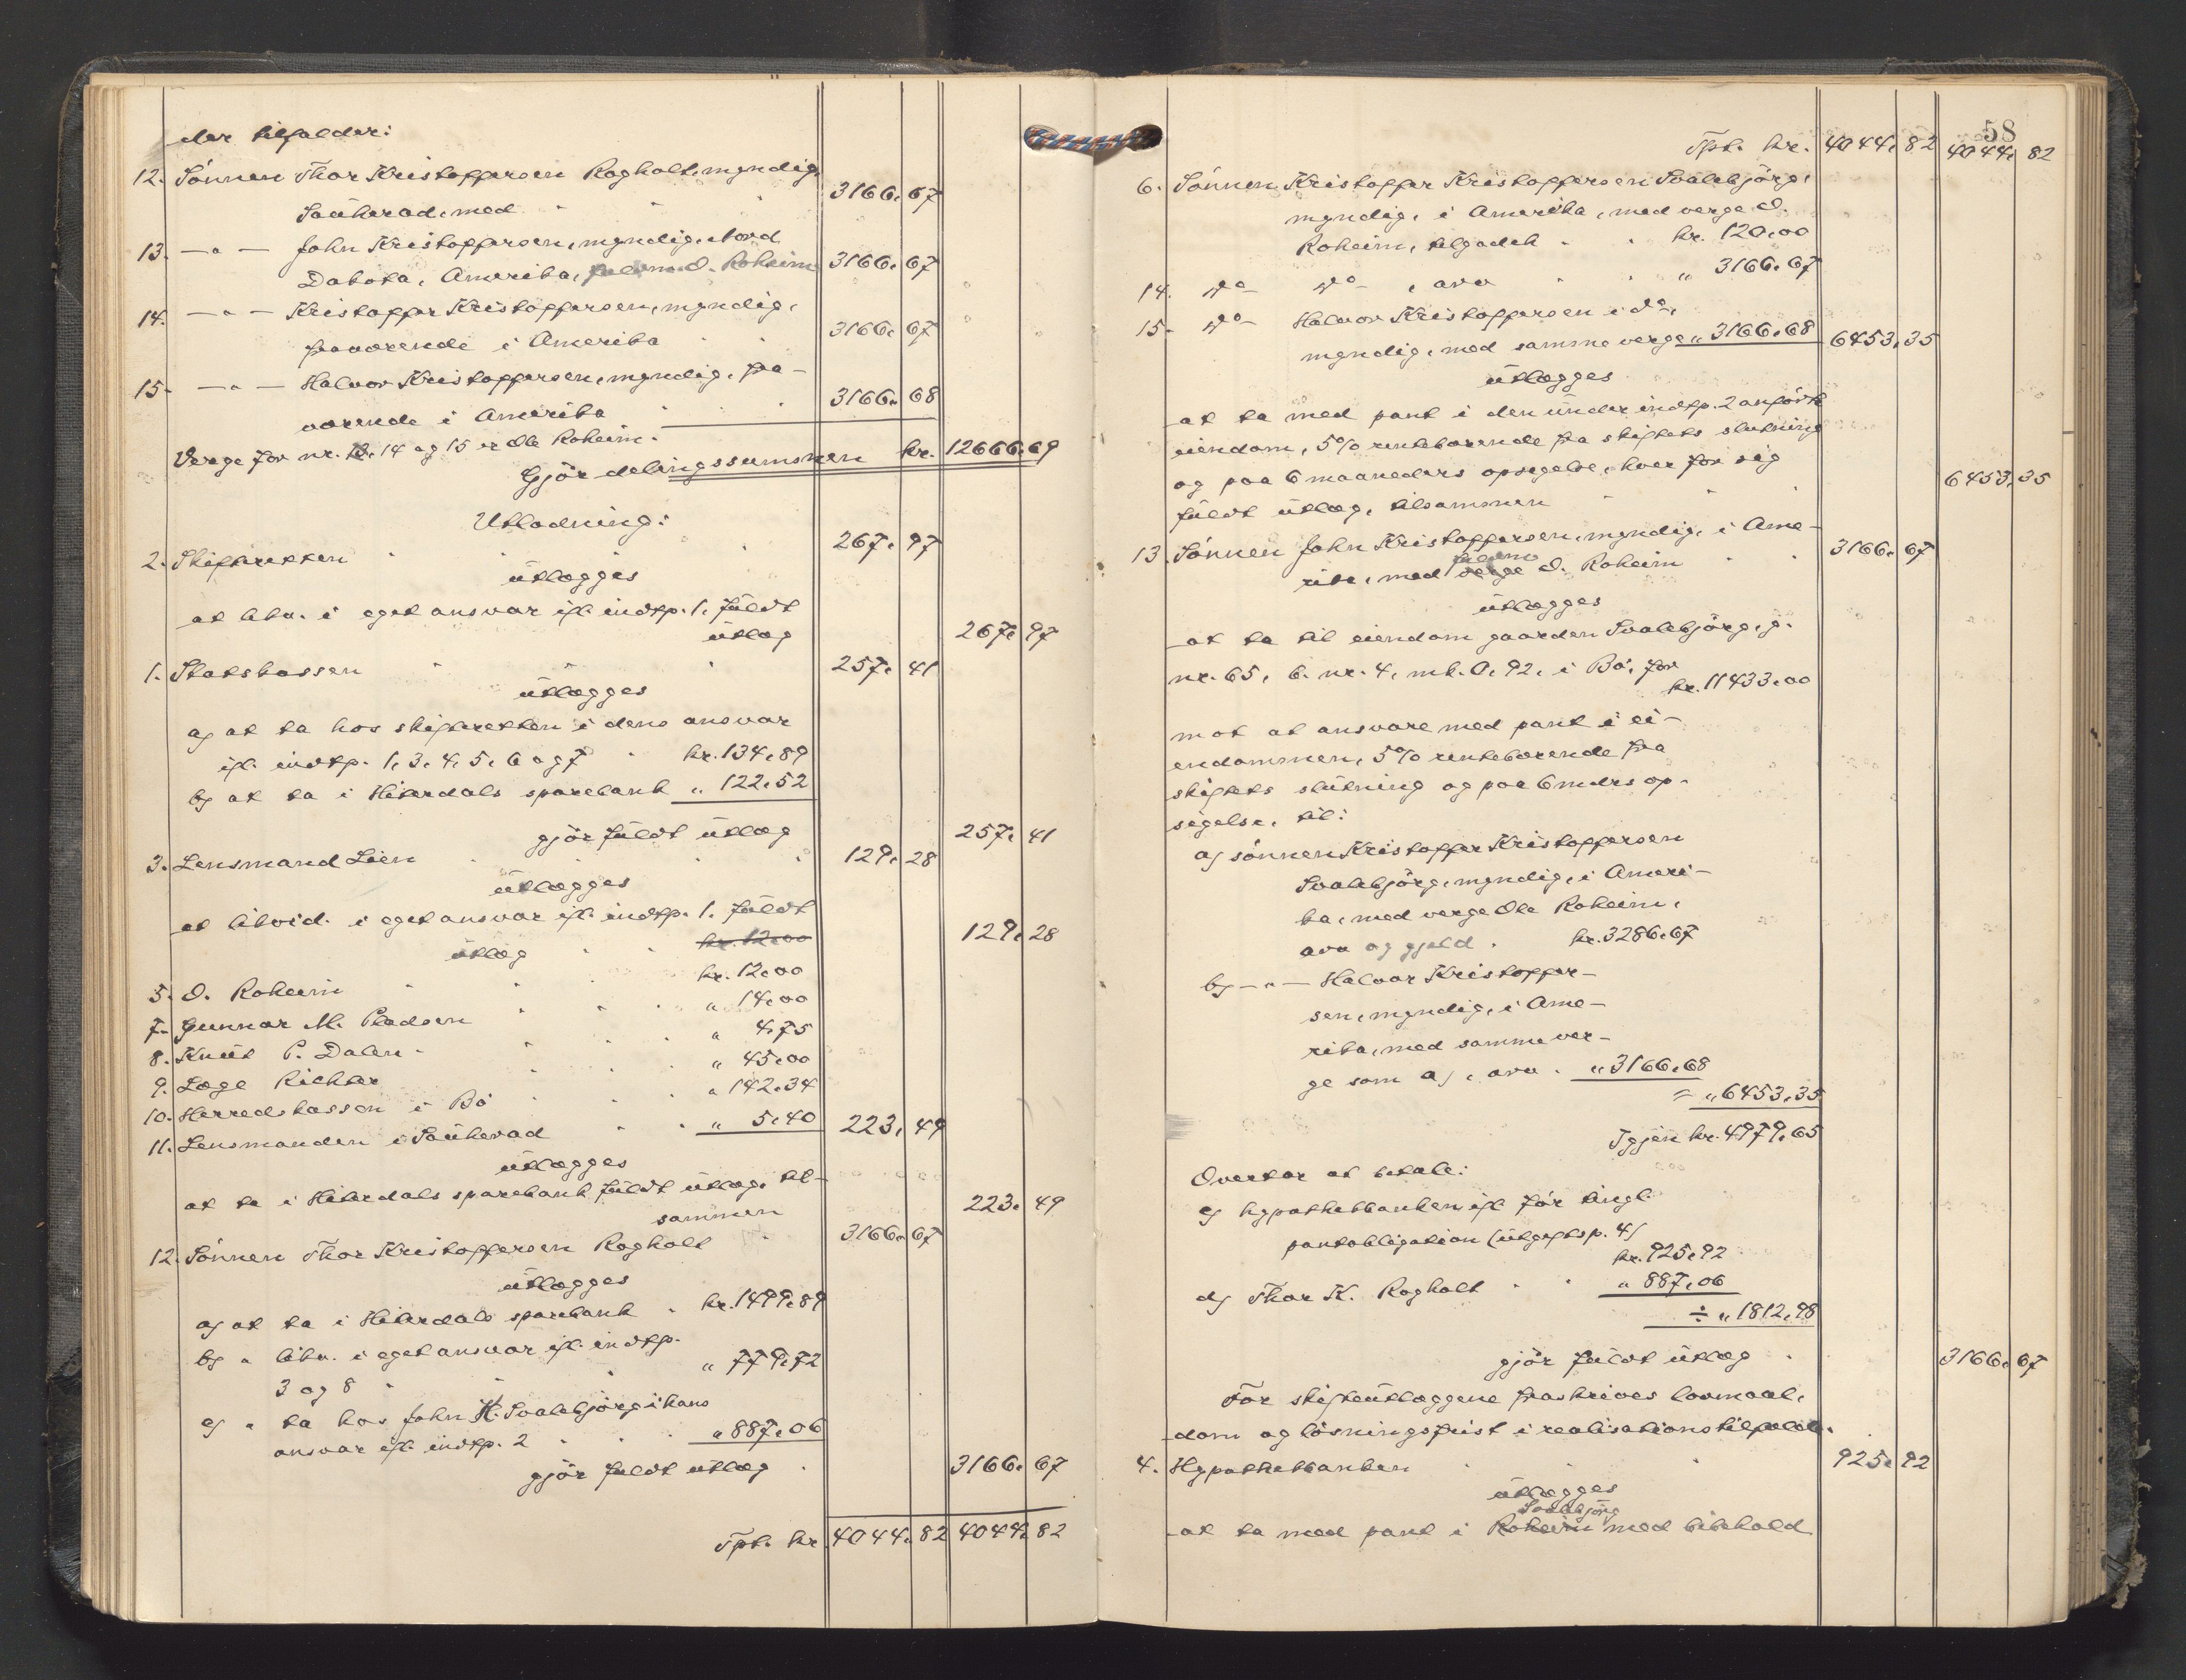 der tilfalder:
12. Sönnen Thor Kristoffersen Rogholt, myndig,
Sauherad, med 3166.67
13. —"— John Kristoffersen, myndig, Nord
Dakota, Amerika, fuldm. O. Roheim 3166.67
14. —"— Kristoffer Kristoffersen, myndig,
fraværende i Amerika 3166.67
15. —"— Halvor Kristoffersen, myndig, fra-
værende i Amerika 3166.68
Verge for nr. 14 og 15 er Ole Roheim.
Gjör delingssummen kr. 12666.69
Utlodning:
2. Skifteretten 267.97
utlægges
at likv. i eget ansvar ifl. indtp. 1. fuldt
utlæg 267.97
1. Statskassen 257.41
utlægges
a) at ta hos skifteretten i dens ansvar
ifl. indtp. 1, 3, 4, 5, 6 og 7 kr. 134.89
b) at ta i Hiterdals sparebank " 122.52
gjör fuldt utlæg 257.41
3. Lensmand Lien 129.28
utlægges
at likvid. i eget ansvar ifl. indtp. 1. fuldt
utlæg kr. 12.00 129.28
5. O. Roheim kr. 12.00
7. Gunnar M. Pladsen " 14.00
8. Knut P. Dalen " 4.75
9. Læge Richter " 45.00
10. Herredskassen i Bö " 142.34
11. Lensmanden i Sauherad " 5.40 223.49
utlægges
at ta i Hiterdals sparebank fuldt utlæg, til-
sammen 223.49
12. Sönnen Thor Kristoffersen Rogholt 3166.67
utlægges
a) at ta i Hiterdals sparebank kr. 1499.89
b) " likv. i eget ansvar ifl. indtp.
3 og 8 " 779.72
c) " ta hos John K. Svalebjörg i hans
ansvar ifl. indtp. 2 " 887.06
gjör fuldt utlæg 3166.67
Tpt. kr. 4044.82 4044.82
58
Tpt. kr. 4044.82 4044.82
6. Sönnen Kristoffer Kristoffersen Svalebjörg,
myndig, i Amerika, med verge O.
Roheim, tilgodeh kr. 120.00
14. do do , arv " 3166.67
15. do Halvor Kristoffersen i do,
myndig, med samme verge " 3166.68 6453.35
utlægges
at ta med pant i den under indtp. 2 anförte
eiendom, 5% rentebærende fra skiftets slutning
og paa 6 maaneders opsigelse, hver for sig
fuldt utlæg, tilsammen 6453.35
13. Sönnen John Kristoffersen, myndig, i Ame-
rika, med verge fuldm O. Roheim 3166.67
utlægges
at ta til eiendom gaarden Svalebjörg, g.
nr. 65, b. nr. 4, mk. 0,92, i Bö, for
kr. 11433.00
mot at ansvare med pant i ei-
endommen, 5% rentebærende fra
skiftets slutning og paa 6 mdrs op-
sigelse, til:
a) sönnen Kristoffer Kristoffersen
Svalebjörg, myndig, i Ameri-
ka, med verge Ole Roheim,
arv og gjeld kr. 3286.67
b) —"— Halvor Kristoffer-
sen, myndig, i Ame-
rika, med samme ver-
ge som a), arv " 3166.68
= " 6453.35
Igjen kr. 4979.65
Overtar at betale:
c) hypothekbanken ifl. för tingl.
pantobligation (utgiftsp. 4)
kr. 925.92
d) Thor K. Rogholt " 887.06
÷ " 1812.98
gjör fuldt utlæg 3166.67
For skifteutlæggene fraskrives lovmaal,
dom og lösningsfrist i realisationstilfælde.
4. Hypothekbanken 925.92
utlægges
Svalebjörg
at ta med pant i Roheim med bibehold